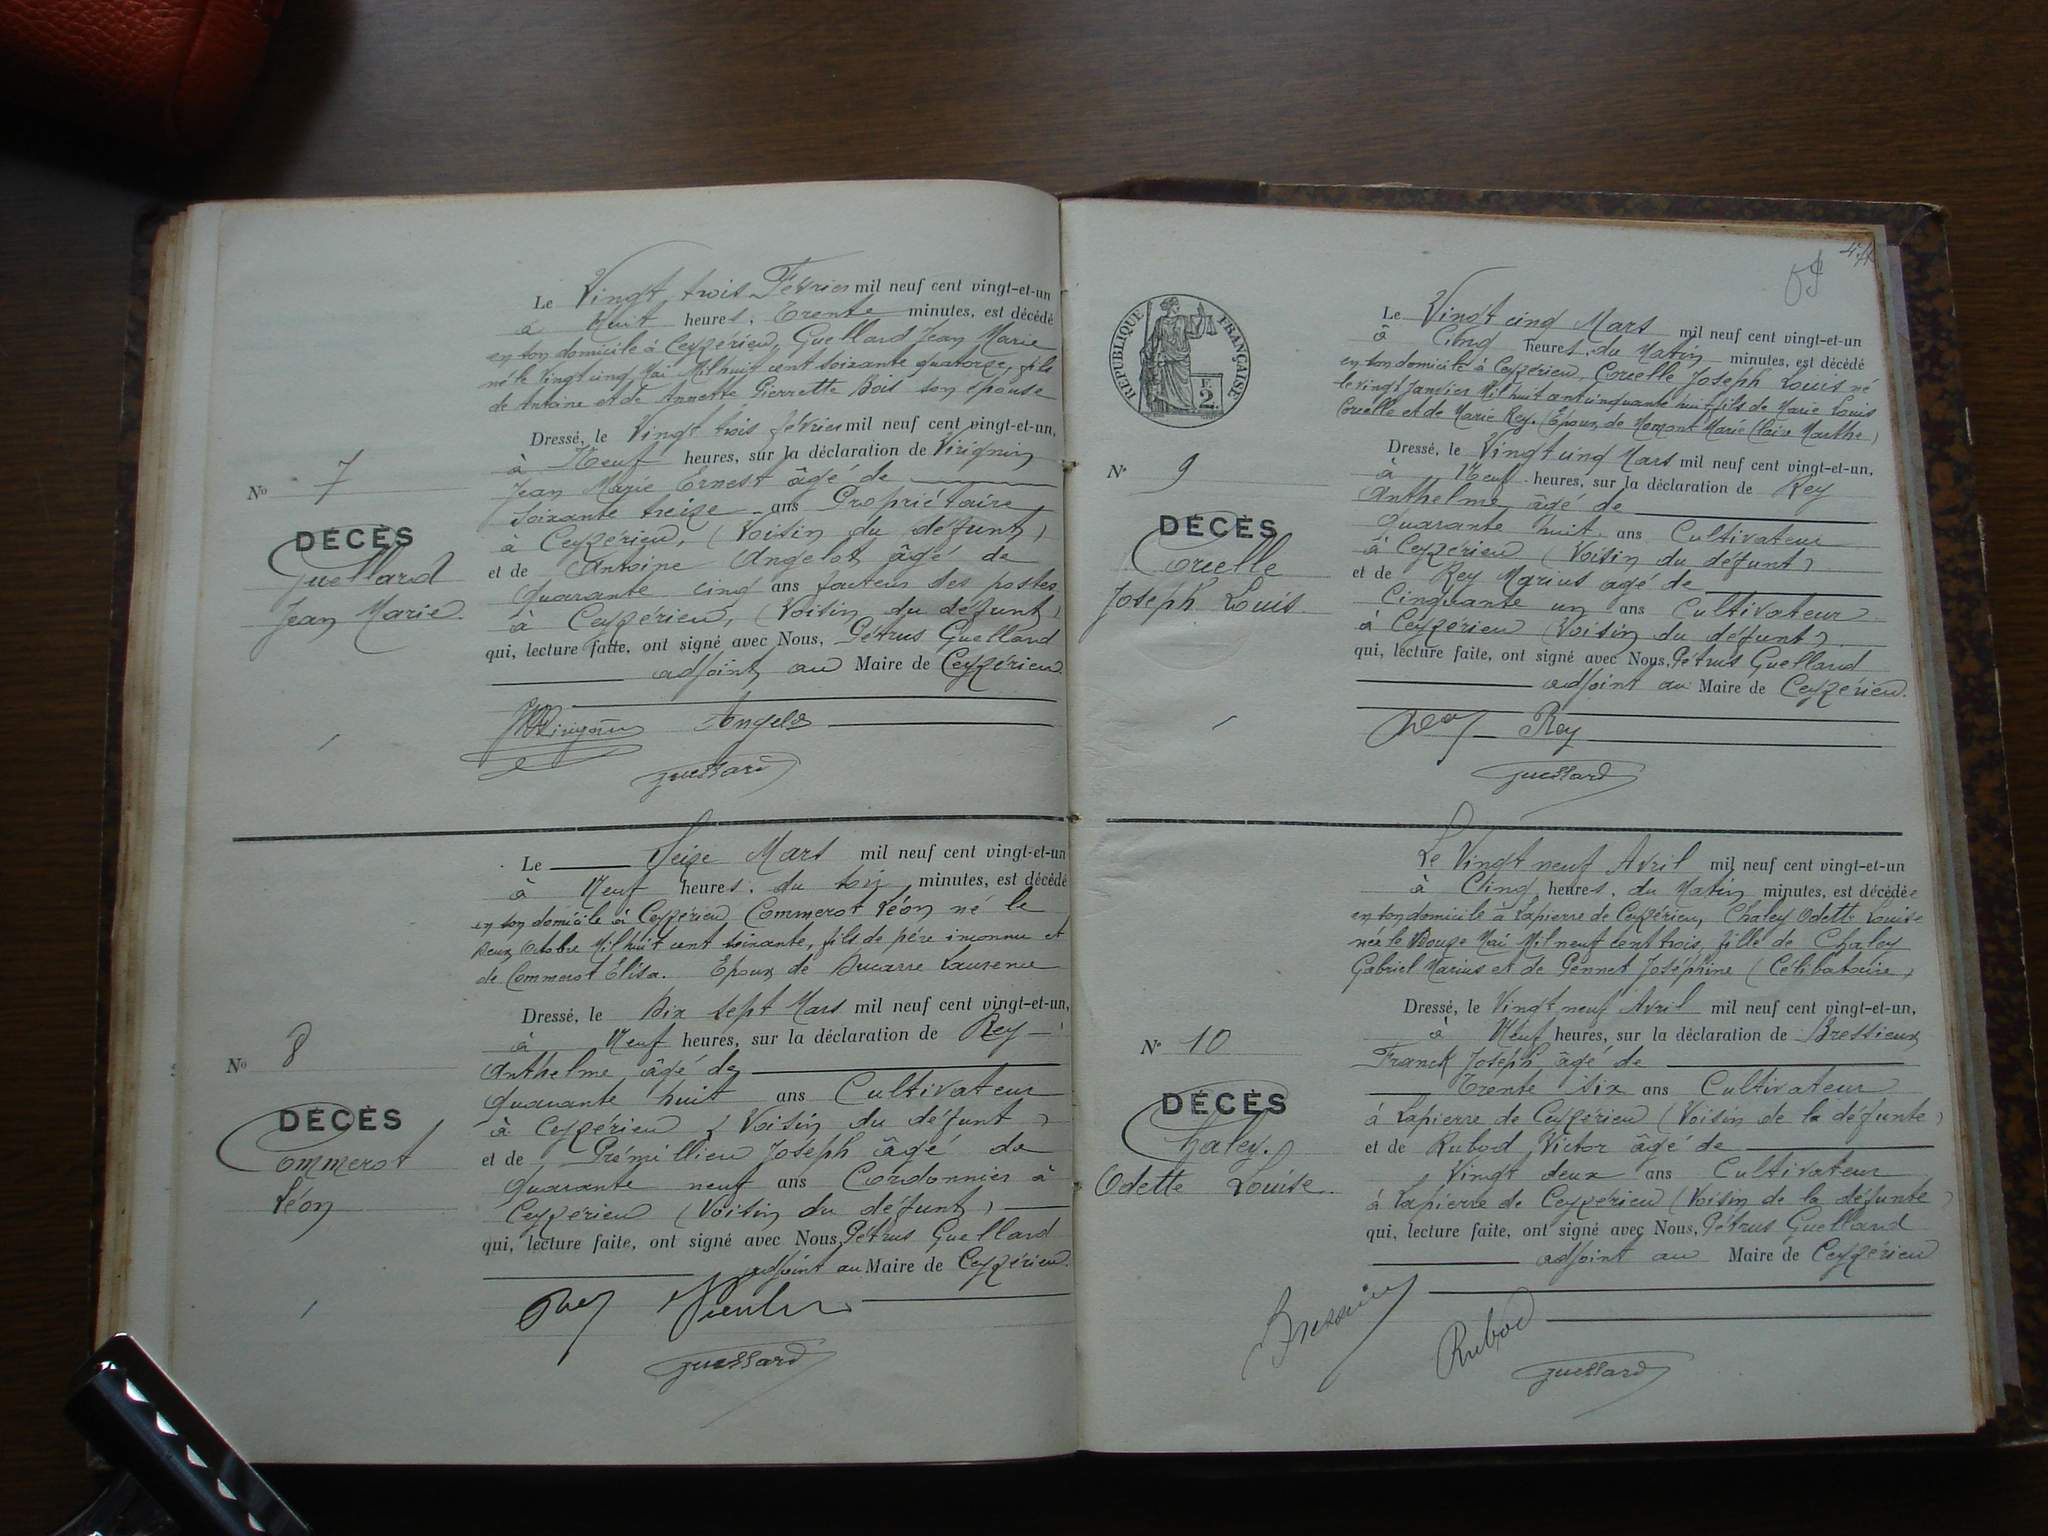 Le Vingt trois Février mil neuf cent vingt-et-un
à Huit heures, Trente minutes, est décédé
en son domicile à Ceyzérieu, Guelland Jean Marie
né le vingt cinq Mai Mil huit cent soixante quatorze, fils
de Antoine et de Annette Pierrette Bois son épouse
Dressé, le Vingt trois février mil neuf cent vingt-et-un,
à Neuf heures, sur la déclaration de Virignin
Jean Marie Ernest âgé de
Soixante treize ans Propriétaire
à Ceyzérieu, (Voisin du défunt)
et de Antoine Angelot âgé de
Quarante cinq ans facteur des postes
à Ceyzérieu, (Voisin du défunt)
qui, lecture faite, ont signé avec Nous, Pétrus Guelland
adjoint au Maire de Ceyzérieu.
Nº 7
DÉCÈS
Guelland
Jean Marie.
Angelot
Guelland
Le Seize Mars mil neuf cent vingt-et-un
à Neuf heures, du soir minutes, est décédé
en son domicile à Ceyzérieu Commerot Léon né le
Deux Octobre Mil huit cent soixante, fils de père inconnu et
de Commerot Élisa. Epoux de Ducarre Laurence
Dressé, le Dix sept Mars mil neuf cent vingt-et-un,
à Neuf heures, sur la déclaration de Rey
Anthelme âgé de
Quarante huit ans Cultivateur
à Ceyzérieu (Voisin du défunt)
et de Prémillieu Joseph âgé de
Quarante neuf ans Cordonnier à
Ceyzérieu (Voisin du défunt)
qui, lecture faite, ont signé avec Nous, Pétrus Guelland
adjoint au Maire de Ceyzérieu.
Nº 8
DÉCÈS
Commerot
Léon
Rey
Guelland
RÉPUBLIQUE FRANÇAISE
F.
2.
Le Vingt cinq Mars mil neuf cent vingt-et-un
à Cinq heures, du Matin minutes, est décédé
en son domicile à Ceyzérieu, Corcelle Joseph Louis né
le vingt Janvier Mil huit cent cinquante huit fils de Marie Louis
Corcelle et de Marie Rey. (Epoux de Momont Marie Claire Marthe)
Dressé, le Vingt cinq Mars mil neuf cent vingt-et-un,
à Neuf heures, sur la déclaration de Rey
Anthelme âgé de
Quarante huit ans Cultivateur
à Ceyzérieu (Voisin du défunt)
et de Rey Marius âgé de
Cinquante un ans Cultivateur
à Ceyzérieu (Voisin du défunt)
qui, lecture faite, ont signé avec Nous, Pétrus Guelland
adjoint au Maire de Ceyzérieu.
Nº 9
DÉCÈS
Corcelle
Joseph Louis.
Rey Rey
Guelland
Le Vingt neuf Avril mil neuf cent vingt-et-un
à Cinq heures, du Matin minutes, est décédée
en son domicile à Lapierre de Ceyzérieu, Chaley Odette Louise
née le Douze Mai Mil neuf cent trois, fille de Chaley
Gabriel Marius et de Pennet Joséphine (Célibataire)
Dressé, le Vingt neuf Avril mil neuf cent vingt-et-un,
à Neuf heures, sur la déclaration de Bressieux
Franck Joseph, âgé de
Trente six ans Cultivateur
à Lapierre de Ceyzérieu (Voisin de la défunte)
et de Rubod Victor âgé de
Vingt deux ans Cultivateur
à Lapierre de Ceyzérieu (Voisin de la défunte)
qui, lecture faite, ont signé avec Nous, Pétrus Guelland
adjoint au Maire de Ceyzérieu
Nº 10
DÉCÈS
Chaley.
Odette Louise.
Bressieux
Rubod
Guelland